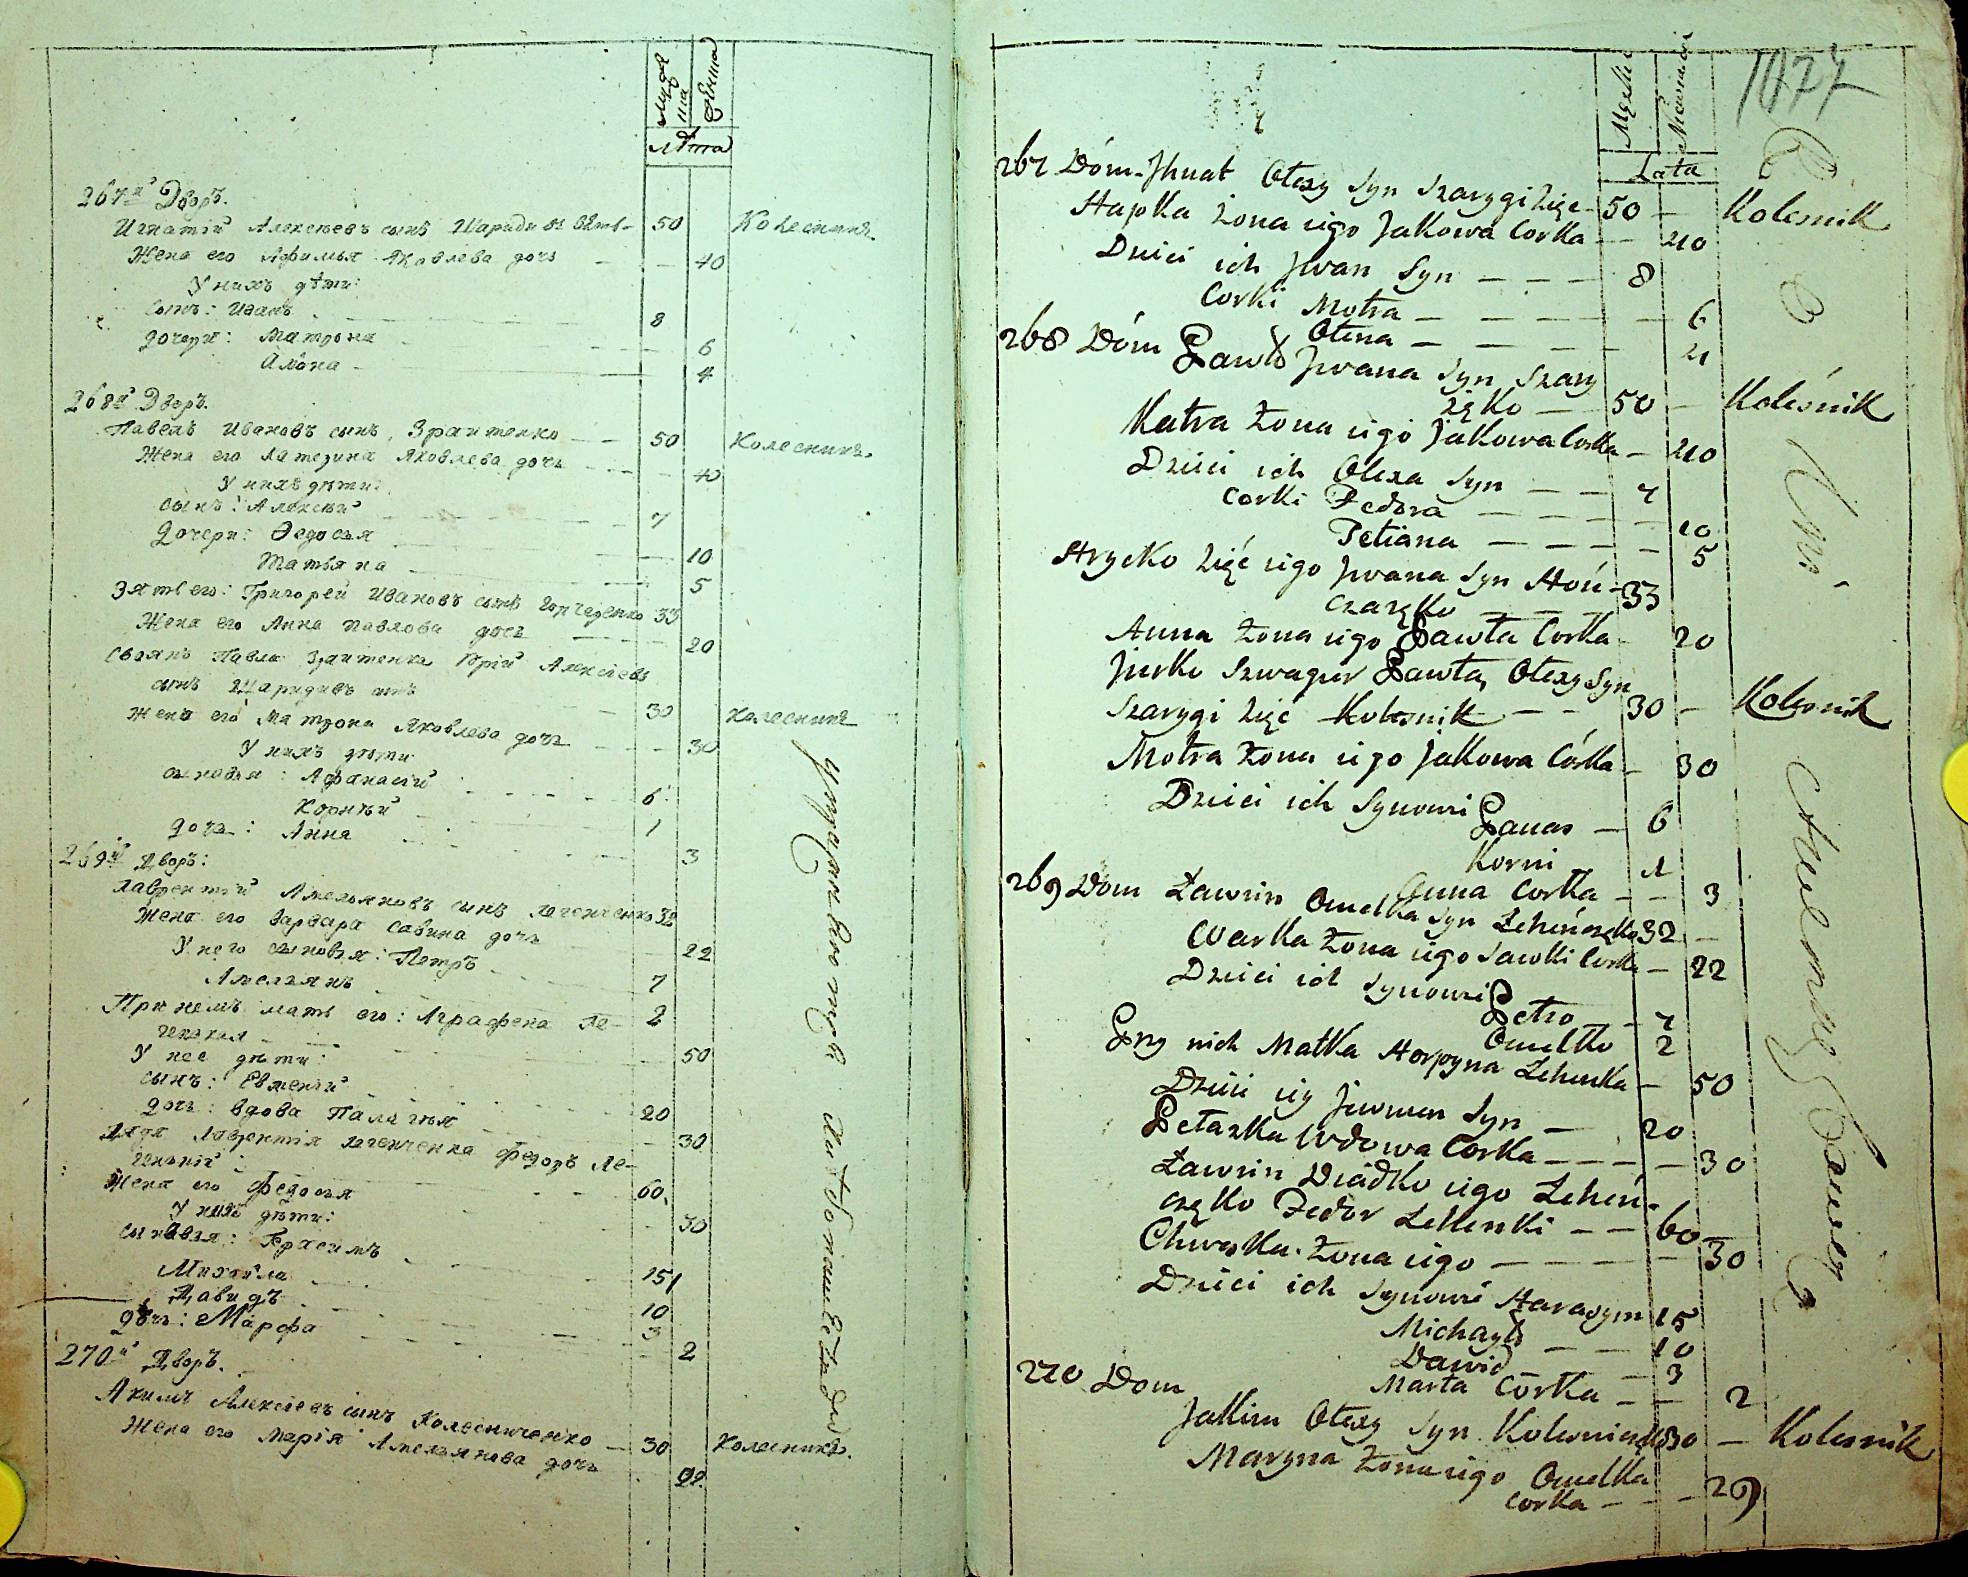 Мужеска Женска
Лѣта
267й Дворъ.
Игнатій Алексѣевъ сынъ 50 Колесникъ
Жена его Афимья Яковлева дочь 40
У нихъ дѣти:
сынъ: Иванъ 8
дочери: Матрона 6
Алёна 4
268й Дворъ.
Павелъ Ивановъ сынъ 50 Колесникъ
Жена его Катерина Яковлева дочь 40
У нихъ дѣти:
сынъ: Алексѣй 7
дочери: Ѳедосья 10
Татьяна 5
Зять его: Григорей Ивановъ сынъ 33
Жена его Анна Павлова дочь 20
Своякъ Павла Юрій Алексѣевъ
сынъ 30 Колесникъ
Жена его Матрона Яковлева дочь 30
У нихъ дѣти
сыновья: Афанасій 6
Корнѣй 1
дочь: Анна 3
269й Дворъ:
Лаврентій Амельяновъ сынъ Легенченко 32
Жена его Варвара Савина дочь 22
У него сыновья: Петръ 7
Амельянъ 2
При немъ мать его: Аграфена Ле-
генькая 50
У нее дѣти:
сынъ: Евменій 20
дочь: вдова Палагѣя 30
Дядя Лаврентія Легенченка Федоръ Ле-
генькій 60
Жена его Федосья 30
У нихъ дѣти:
сыновья: Герасимъ 15
Михайла 10
Давидъ 3
дочь: Марфа 2
270й Дворъ.
Якимъ Алексѣевъ сынъ Колесниченко 30 Колесникъ.
Жена его Марія Амельянова дочь 29
1077
Męzkie Niewieście
Lata
267 Dóm Jhnat Ołexy Syn Szarygi Zięć 50 — Kolesnik
Hapka Żona iigo Jakowa Corka — 40
Dzieci ich Jwan Syn — — — 8
Corki Motra — — — — 6
Ołena — — — — 4
268 Dóm Pawło Jwana Syn Szary
zęko — 50 — Kolesnik
Katra Żona iigo Jakowa Corka — 40
Dzieci ich Olexa Syn — — 7
Corki Fedora — — — — 10
Tetiana — — — — 5
Hrycko Zięć iigo Jwana Syn Hoń-
czaręko — — — 33
Anna Żona iigo Pawła Corka — 20
Jurko Szwagier Pawła, Ołexy Syn
Szarygi Zięć Kolesnik — — 30 — Kolesnik
Motra Żona iigo Jakowa Córka — 30
Dzieci ich Synowie Panas — 6
Korni 1
Anna Corka — — 3
269 Dom Ławrin Omelka Syn Lehińczęko 32 —
Warka Żona iigo Sawki Corka — 22
Dzieci ich Synowie Petro — 7
Omelko 2
Przy nich Matka Horpyna Lehenka — 50
Dzieci iiy Jiwmen Syn — 20
Petazka Wdowa Corka — — — — 30
Ławrin Dziadko iigo Leheń-
częko Fedor Lehenki — — 60
Chweska Żona iigo — — — — 30
Dzieci ich Synowie Harasym 15
Michayło — — 10
Dawid — — 3
Marta Corka — — 2
270 Dom
Jakim Ołexy Syn Kolesniczęko 30 — Kolesnik
Maryna Żona iigo Omelka
Corka — — — 29